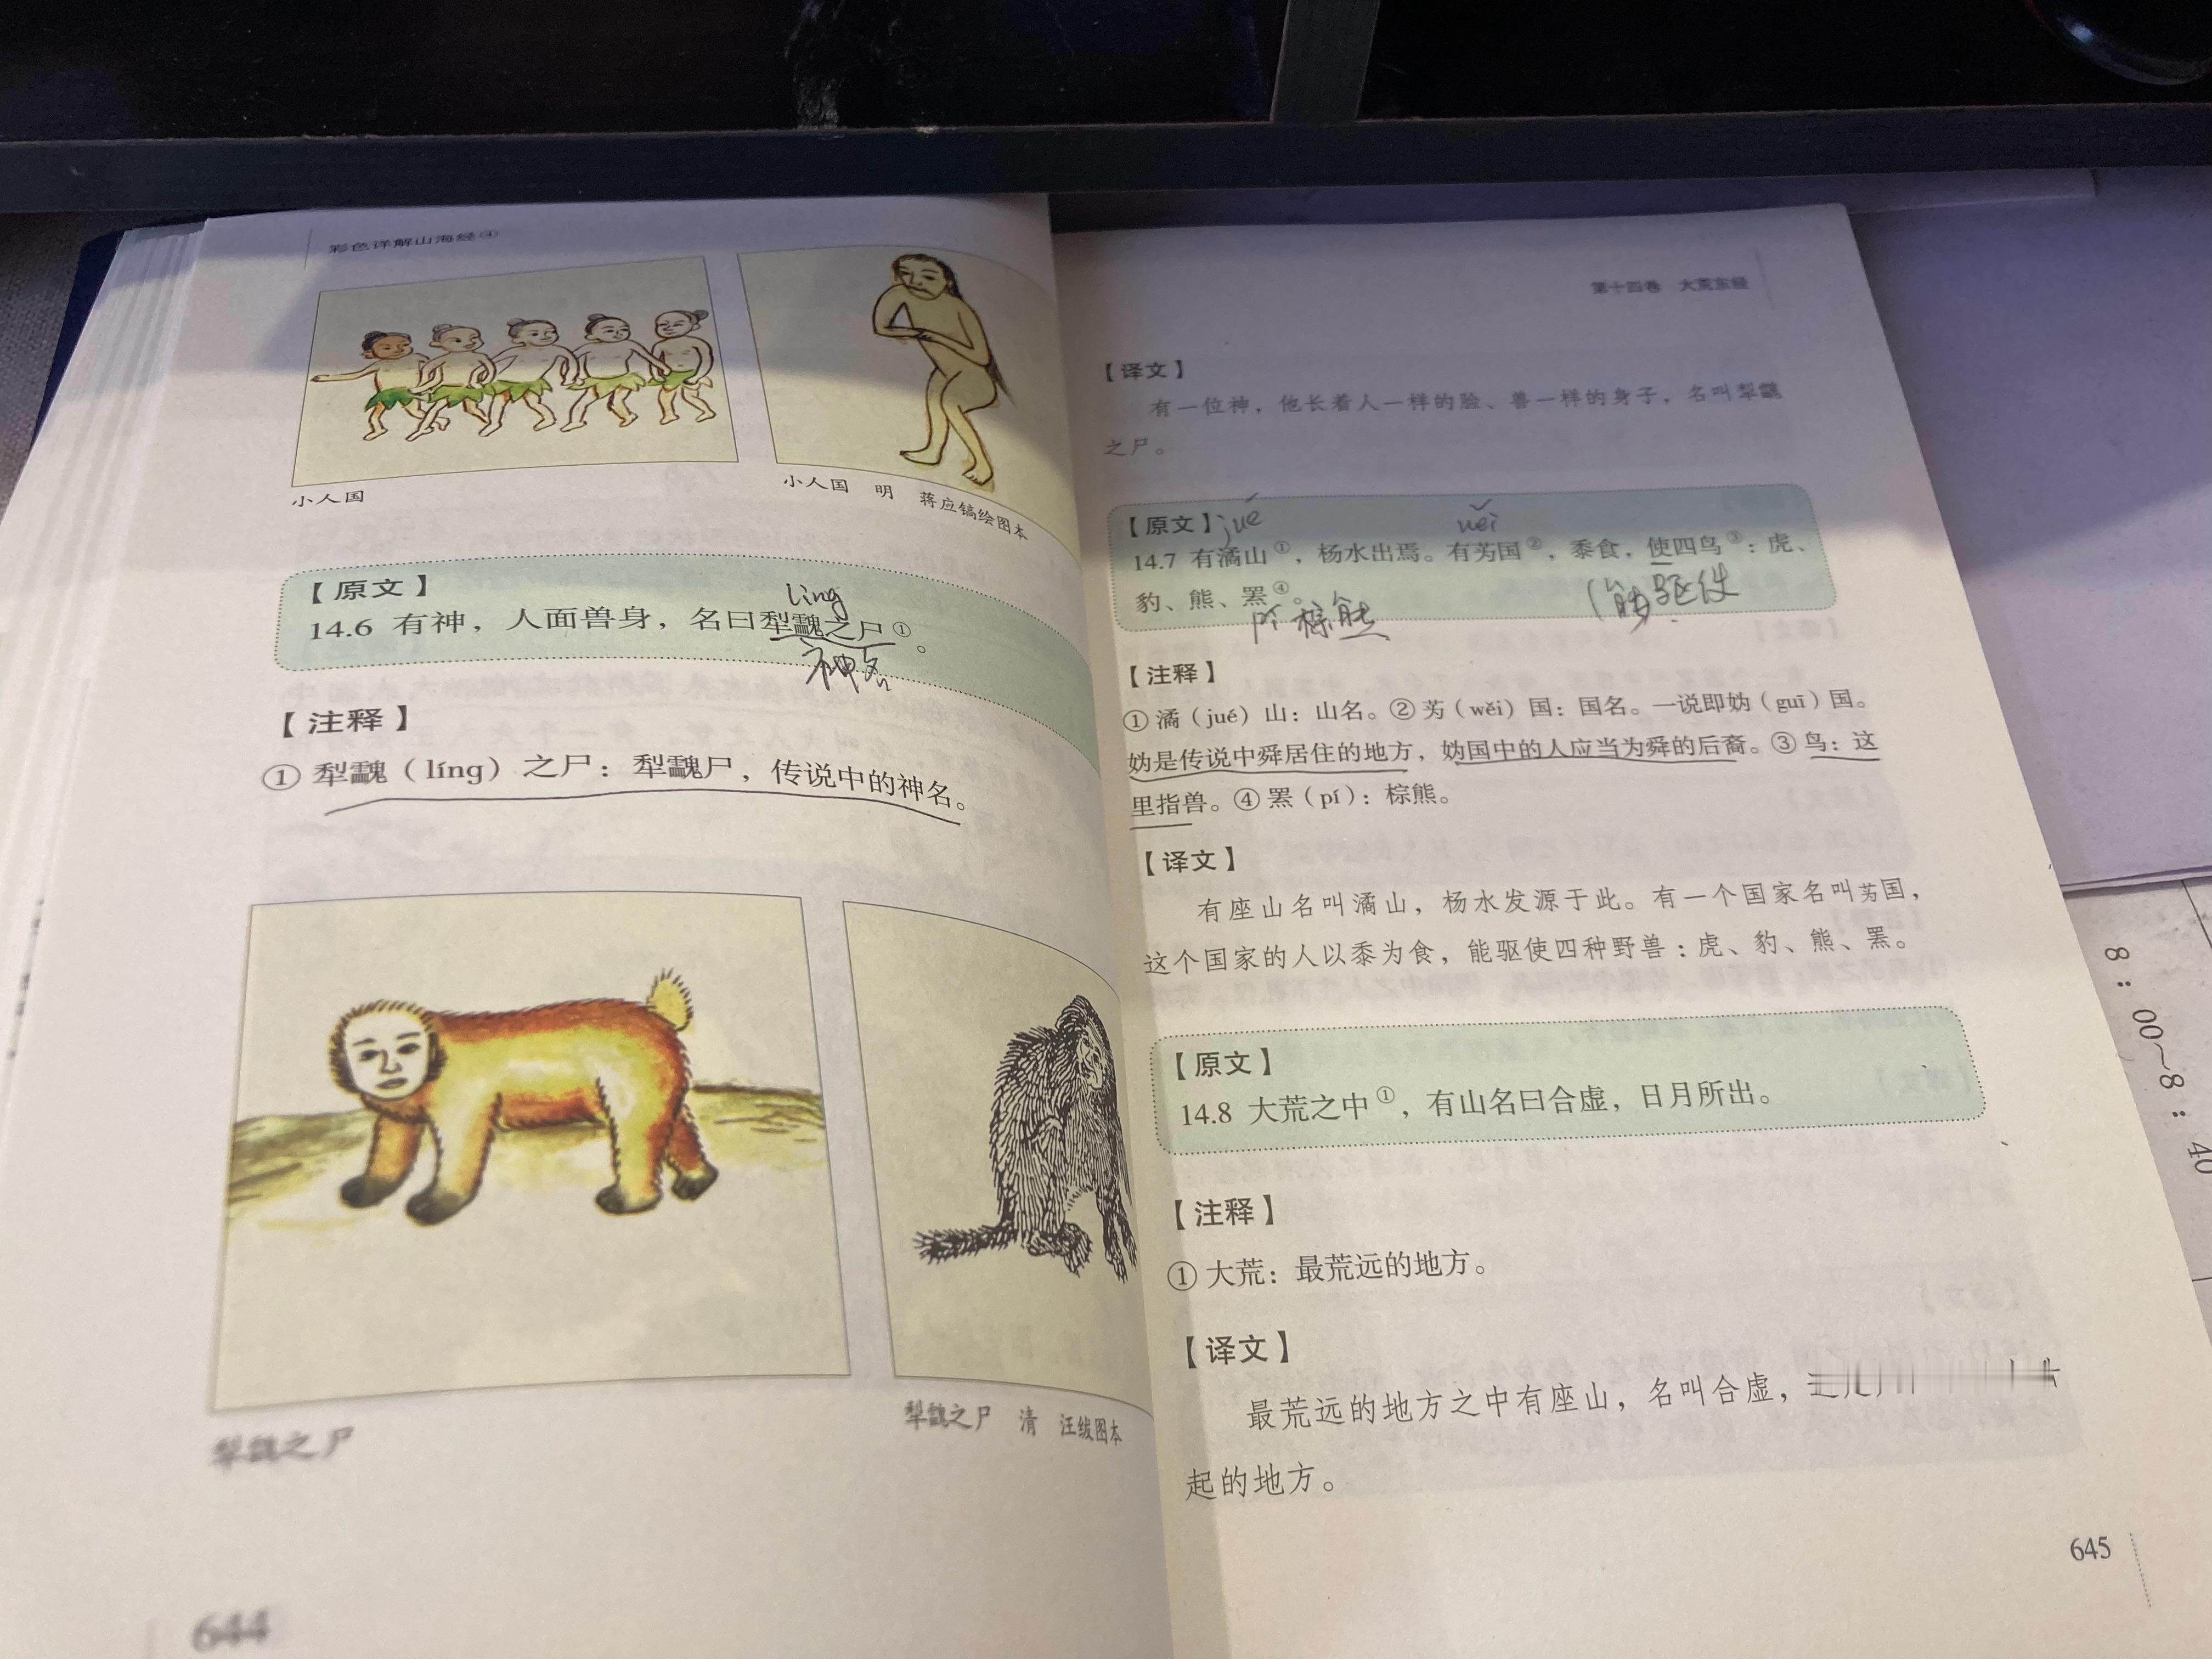 彩色详解山海经④
小人国
小人国 明 蒋应镐绘图本
【原文】
líng
14.6 有神，人面兽身，名曰犁𩴆之尸①。
神名
【注释】
①犁𩴆（líng）之尸：犁𩴆尸，传说中的神名。
犁𩴆之尸
犁𩴆之尸 清 汪绂图本
644
第十四卷 大荒东经
【译文】
有一位神，他长着人一样的脸、兽一样的身子，名叫犁𩴆
之尸。
【原文】
jué wěi
14.7 有潏山①，杨水出焉。有䓕国②，黍食，使四鸟③：虎、
豹、熊、罴④。
pí 棕熊
能驱使
【注释】
①潏（jué）山：山名。②䓕（wěi）国：国名。一说即妫（guī）国。
妫是传说中舜居住的地方，妫国中的人应当为舜的后裔。③鸟：这
里指兽。④罴（pí）：棕熊。
【译文】
有座山名叫潏山，杨水发源于此。有一个国家名叫䓕国，
这个国家的人以黍为食，能驱使四种野兽：虎、豹、熊、罴。
【原文】
14.8 大荒之中①，有山名曰合虚，日月所出。
【注释】
①大荒：最荒远的地方。
【译文】
最荒远的地方之中有座山，名叫合虚，
起的地方。
645
8：00～8：40